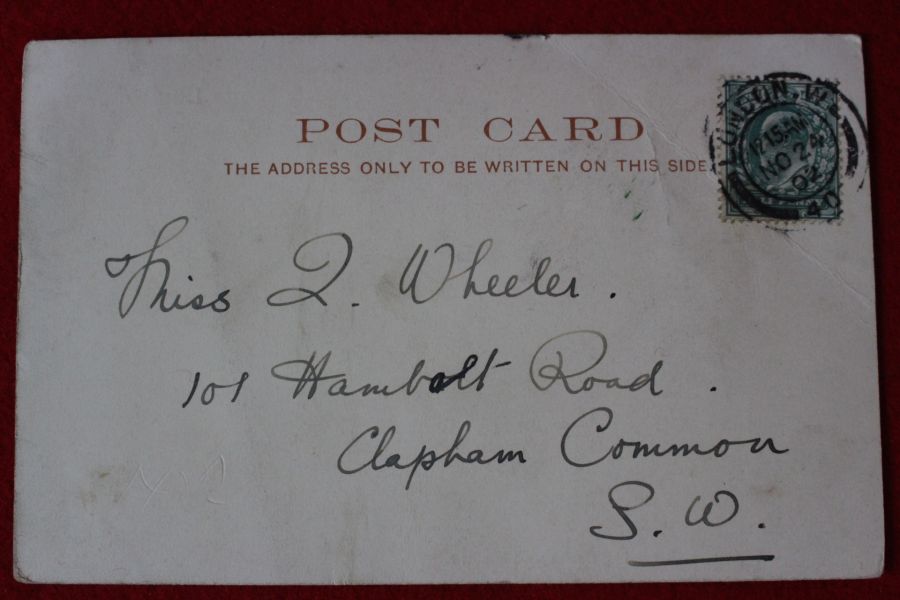 POST CARD
THE ADDRESS ONLY TO BE WRITTEN ON THIS SIDE
LONDON. W.C.
12.15AM
NO 24
02
40
Miss Q. Wheeler.
101 Hambolt Road.
Clapham Common
S. W.